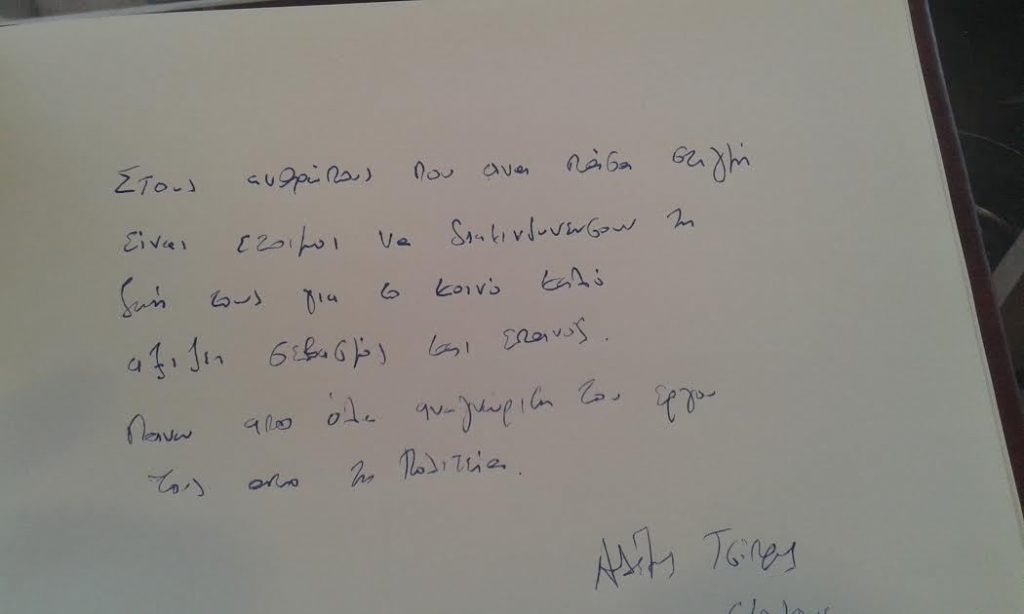 Στους ανθρώπους που ανα πάσα στιγμή
είναι έτοιμοι να διακινδυνεύσουν τη
ζωή τους για το κοινό καλό
αξίζει σεβασμός και επαινος.
Πανω απο όλα αναγνώριση του εργου
τους απο τη Πολιτεία.
Αλέξης Τσίπρας